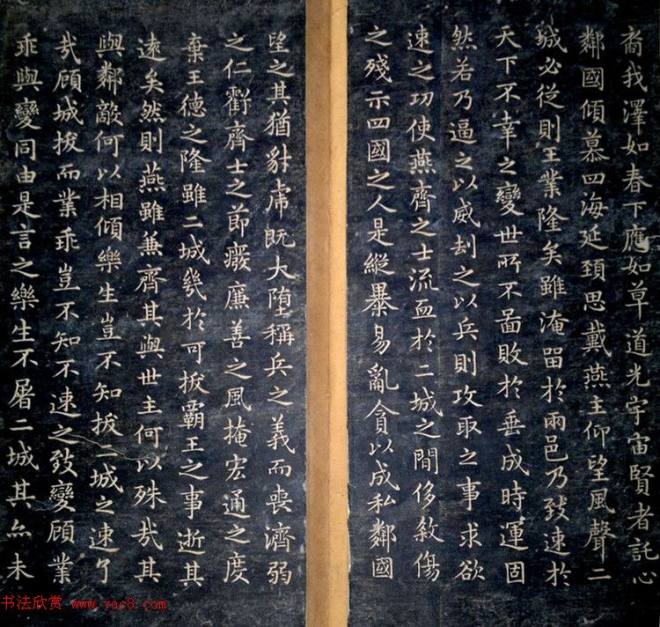 裔我澤如春下應如草道光宇宙賢者託心
鄰國傾慕四海延頚思戴燕主仰望風聲二
城必從則王業隆矣雖淹留於兩邑乃致速於
天下不幸之變世所不啚敗於垂成時運固
然若乃逼之以威刦之以兵則攻取之事求欲
速之功使燕齊之士流血於二城之間侈殺傷
之殘示四國之人是縱暴易亂貪以成私鄰國
望之其猶豺虎既大墮稱兵之義而喪濟弱
之仁虧齊士之節癈廉善之風掩宏通之度
棄王德之隆雖二城幾於可拔霸王之事逝其
遠矣然則燕雖兼齊其與世主何以殊哉其
與鄰敵何以相傾樂生豈不知拔二城之速了
哉顧城拔而業乖豈不知不速之致變顧業
乖與變同由是言之樂生不屠二城其亦未
书法欣赏 www.yac8.com